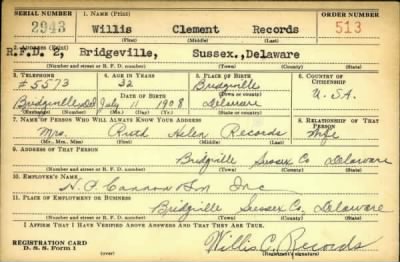 SERIAL NUMBER 1. NAME (Print) ORDER NUMBER
2943 Willis Clement Records 513
(First) (Middle) (Last)
2. ADDRESS (Print)
R.F.D. 2, Bridgeville, Sussex.,Delaware
(Number and street or R. F. D. number) (Town) (County) (State)
3. TELEPHONE 4. AGE IN YEARS 5. PLACE OF BIRTH 6. COUNTRY OF CITIZENSHIP
#5573 32 Bridgville
DATE OF BIRTH (Town or county) U.S.A.
Bridgville Del July 11 1908 Delaware
(Exchange) (Number) (Mo.) (Day) (Yr.) (State or country)
7. NAME OF PERSON WHO WILL ALWAYS KNOW YOUR ADDRESS 8. RELATIONSHIP OF THAT PERSON
Mrs. Ruth Helen Records Wife
(Mr., Mrs., Miss) (First) (Middle) (Last)
9. ADDRESS OF THAT PERSON
Bridgville Sussex Co. Delaware
(Number and street or R. F. D. number) (Town) (County) (State)
10. EMPLOYER'S NAME
H. P Cannon Son Inc
11. PLACE OF EMPLOYMENT OR BUSINESS
Bridgville Sussex Co. Delaware
(Number and street or R. F. D. number) (Town) (County) (State)
I AFFIRM THAT I HAVE VERIFIED ABOVE ANSWERS AND THAT THEY ARE TRUE.
REGISTRATION CARD
D. S. S. Form 1 Willis C. Records
(Registrant's signature)